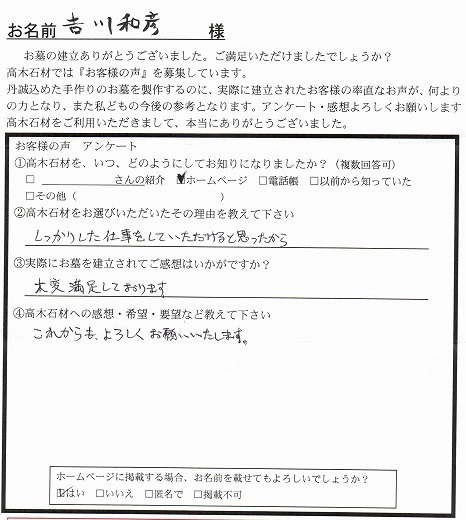 お名前 吉川和彦 様
お墓の建立ありがとうございました。ご満足いただけましたでしょうか？
高木石材では『お客様の声』を募集しています。
丹誠込めた手作りのお墓を製作するのに、実際に建立されたお客様の率直なお声が、何より
の力となり、また私どもの今後の参考となります。アンケート・感想よろしくお願いします
高木石材をご利用いただきまして、本当にありがとうございました。
お客様の声　アンケート
①高木石材を、いつ、どのようにしてお知りになりましたか？（複数回答可）
□ ＿＿＿＿＿＿さんの紹介 ☑ホームページ □電話帳 □以前から知っていた
□その他（　　　　　　　　　　）
②高木石材をお選びいただいたその理由を教えて下さい
しっかりした仕事をしていただけると思ったから
③実際にお墓を建立されてご感想はいかがですか？
大変満足しております
④高木石材への感想・希望・要望など教えて下さい
これからも、よろしくお願いいたします。
ホームページに掲載する場合、お名前を載せてもよろしいでしょうか？
☑はい □いいえ □匿名で □掲載不可